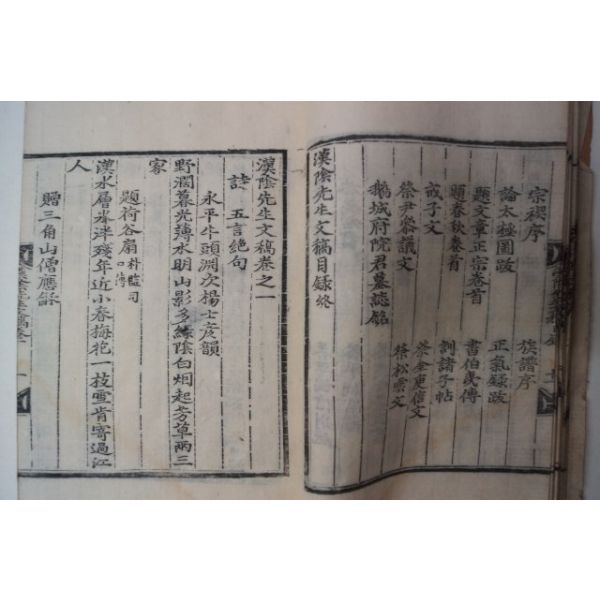 宗禊序
族譜序
論太極圖跋
正氣錄跋
題文章正宗卷首
書伯氏傳
題春秋卷首
訓諸子帖
戒子文
祭金更信文
祭尹參議文
祭松雲文
鵝城府院君墓誌銘
漢陰先生文稿目録終
漢陰先生文稿卷之一
詩 五言絶句
永平牛頭淵次楊士彦韻
野濶暮光薄水明山影多綠陰白烟起芳草兩三
家
題荷谷扇 朴監司口傳
漢水層氷泮殘年近小春梅花一枝雪肯寄過江
人
贈三角山僧應舒